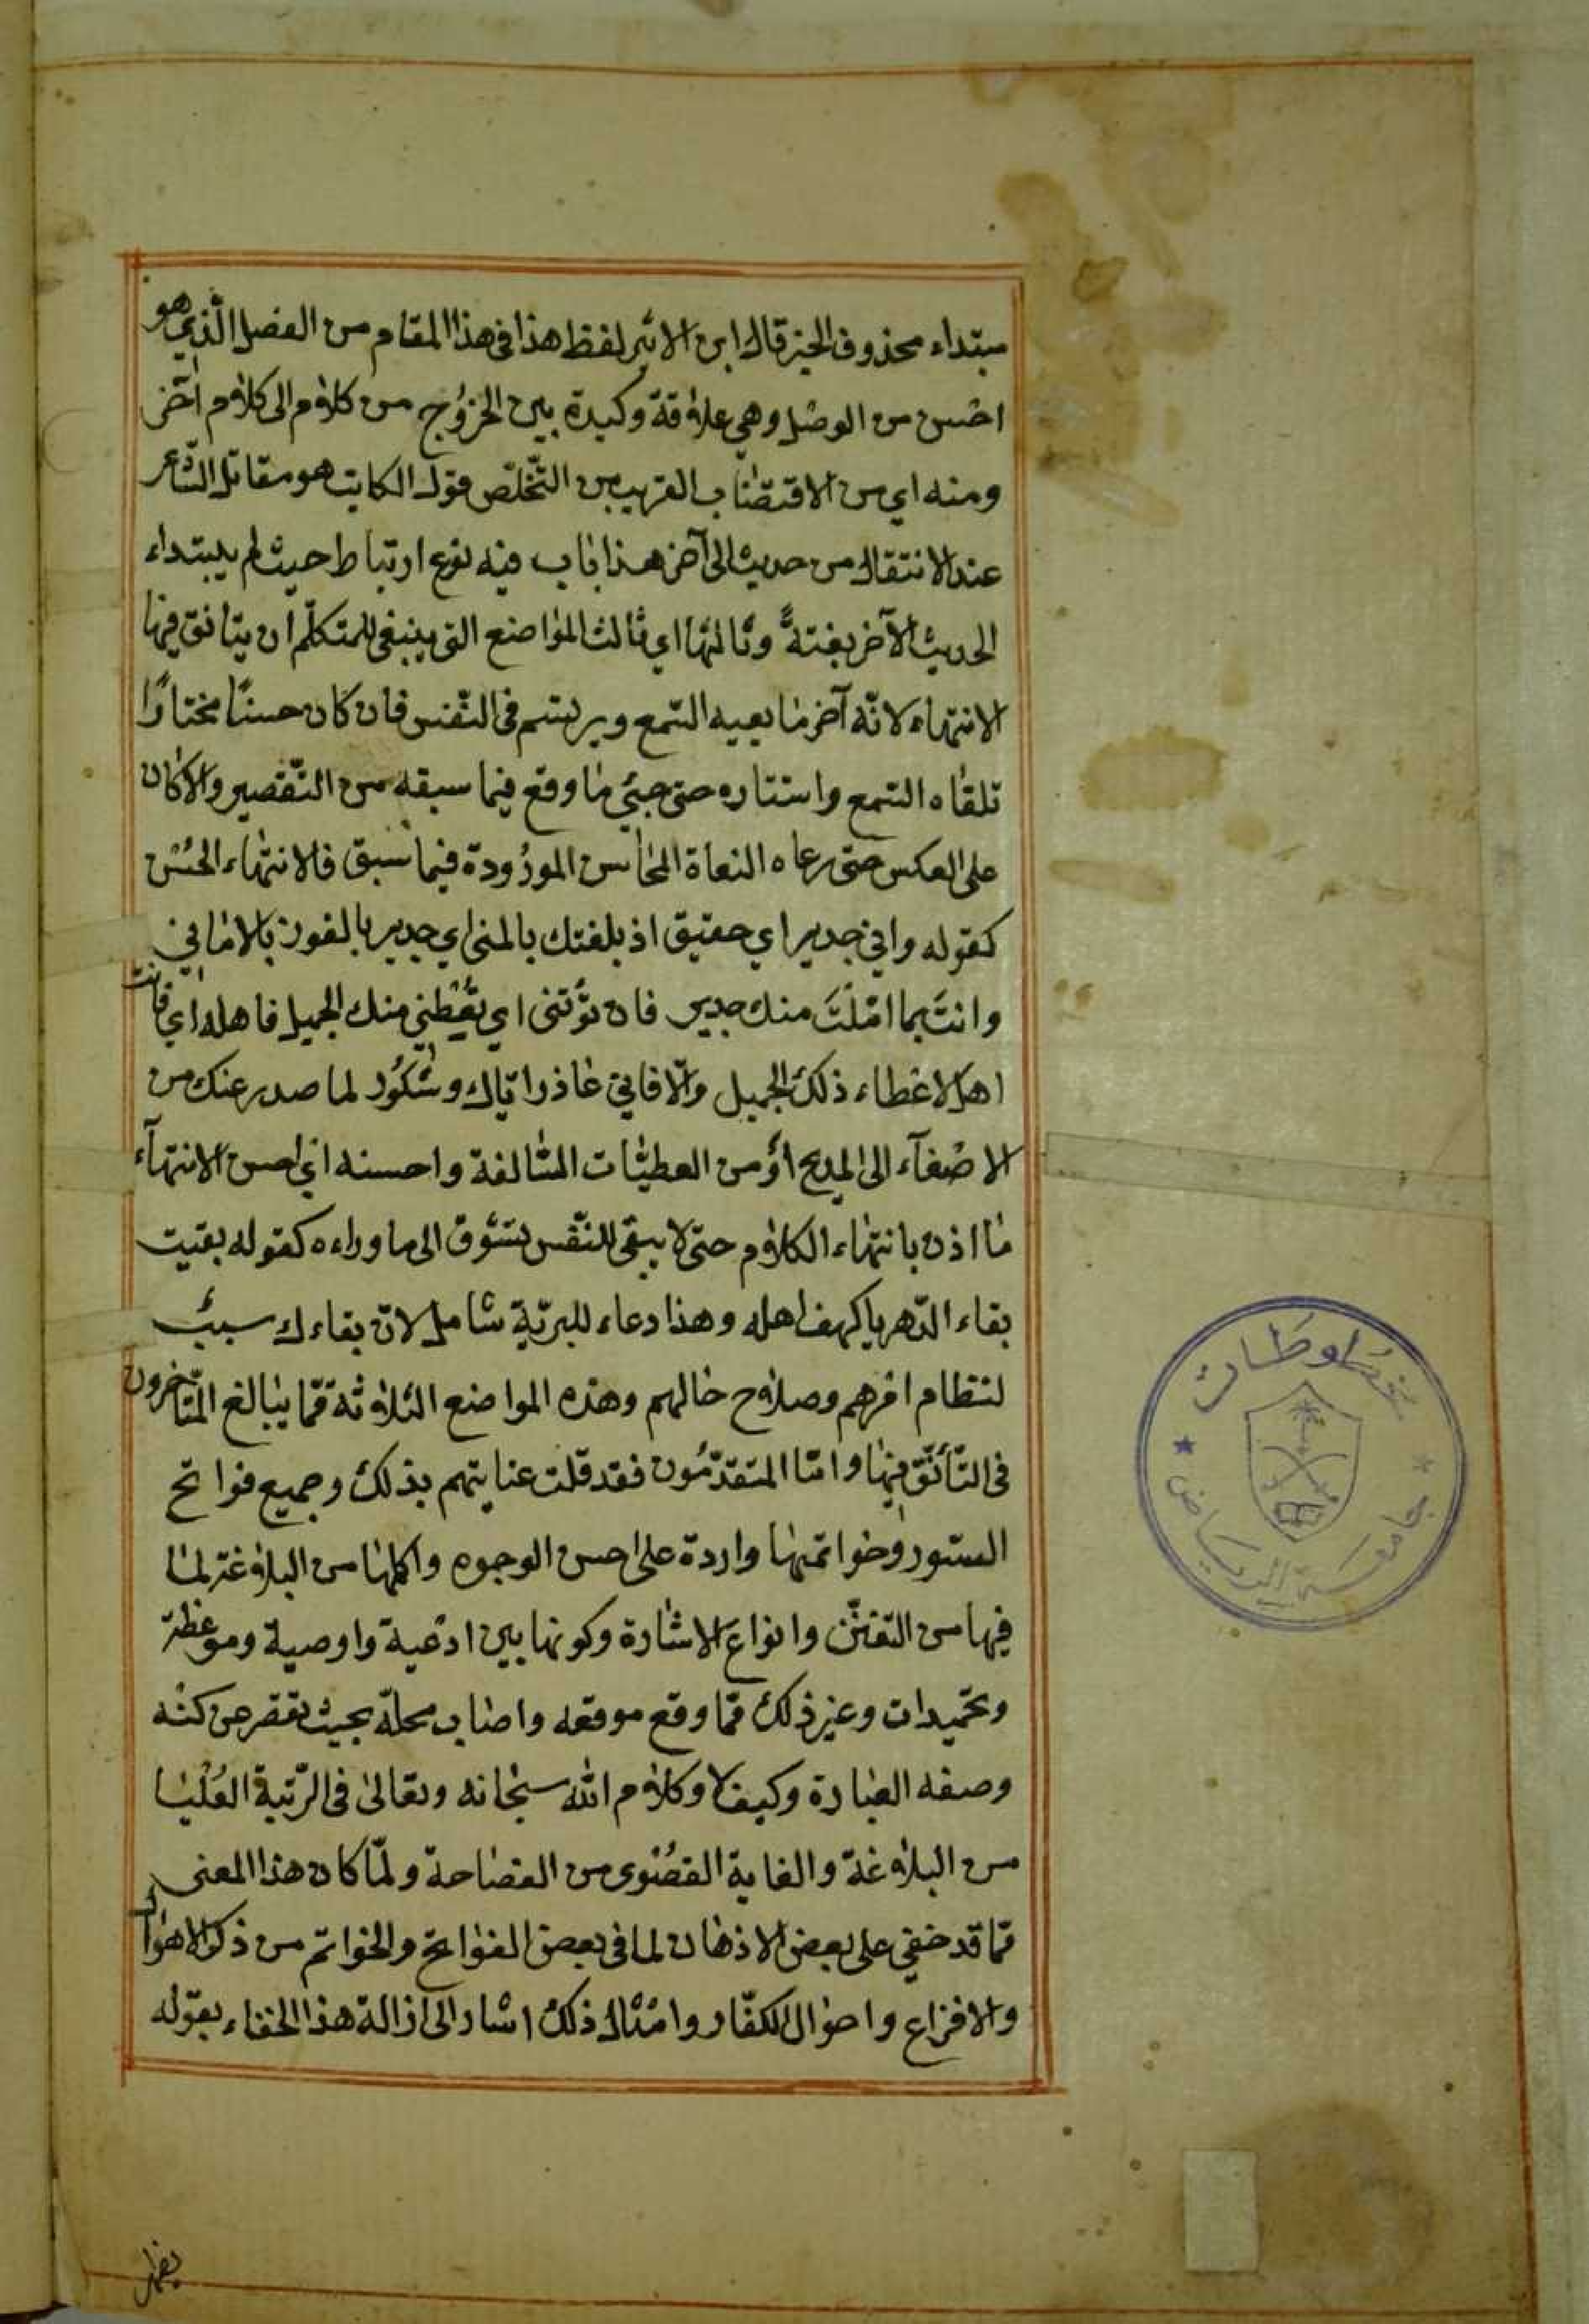 مبتداء محذوف الخبر قال ابن الاثير لفظ هذا في هذا المقام من الفصل الّذي هو
احسن من الوصل وهي علاقة وكيدة بين الخروُج من كلام الى كلام آخر
ومنه اي من الاقتضاب القريب من التّخلّص قول الكاتب هو مقابل الشّاعر
عند الانتقال من حديث الى آخر هذا باب فيه نوع ارتباط حيث لم يبتداء
الحديث الآخر بغتةً وثالثها اي ثالث المواضع التي ينبغي للمتكلّم ان يتانق فيها
الانتهاء لانّه آخر ما يعيه السّمع ويرتسم في النّفس فان كان حسنًا مختارًا
تلقاه السّمع واستتاره حتى جبئ ما وقع فيما سبقه من التّقصير والا كان
على العكس حتى رعاه النعاة المحاسن الموروُدة فيما سبق فالانتهاء الحسن
كقوله واني جدير اي حقيق اذ بلغتك بالمنى اي جدير بالفوز بالاماني
وانتَ بما امّلتَ منك جدير فان تؤتنى اي تعْطني منك الجميل فاهله اي فانت
اهل لاعطاء ذلك الجميل والّا فاني عاذر ايّاك وشكُور لما صدر عنك من
الاصْغآء الى المديح اوْ من العطيّات السّالفة واحسنه اي احسن الانتهآء
ما اذن بانتهاء الكلام حتى لا يبقى للنّفس تشوّق الى ما وراءه كقوله بقيت
بقاء الدّهر يا كهف اهله وهذا دعاء للبريّة شامل لانّ بقاءك سبب
لنتظام امرهم وصلاح حالهم وهذه المواضع الثلاثة ممّا يبالغ المتّاخرون
في التّأنّق فيها وامّا المتقدّمُون فقد قلت عنايتهم بذلك وجميع فواتح
السّور وخواتمها واردة على احسن الوجوه واكملها من البلاغة لما
فيها من التّفنّن وانواع الاشارة وكونها بين ادْعية واوصية وموعظة
وتحميدات وغير ذلك ممّا وقع موقعه واصاب محلّه بحيث تقصر عن كنه
وصفه العبارة وكيف لا وكلام الله سبحانه وتعالى في الرّتبة العُلْيا
من البلاغة والغاية القصْوى من الفصاحة ولمّا كان هذا المعنى
ممّا قد خفي على بعض الاذهان لما في بعض الفواتح والخواتم من ذكر الاهوال
والافزاع واحوال الكفّار وامْثال ذلك اشار الى ازالة هذا الخفاء بقوله
مخطوطات
جامعة الرياض